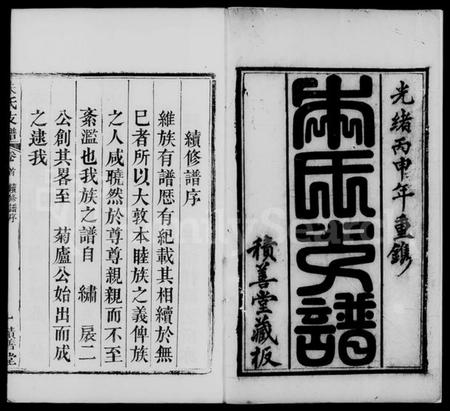 光緒丙申年重鐫
氏支譜
積善堂藏板
續修譜序
維族有譜歷有紀載其相續於無
巳者所以大敦本睦族之義俾族
之人咸曉然於尊尊親親而不至
紊濫也我族之譜自 繡 扆二
公創其畧至 菊廬公始出而成
之逮我
氏支譜 卷首 續修譜序 一 積善堂